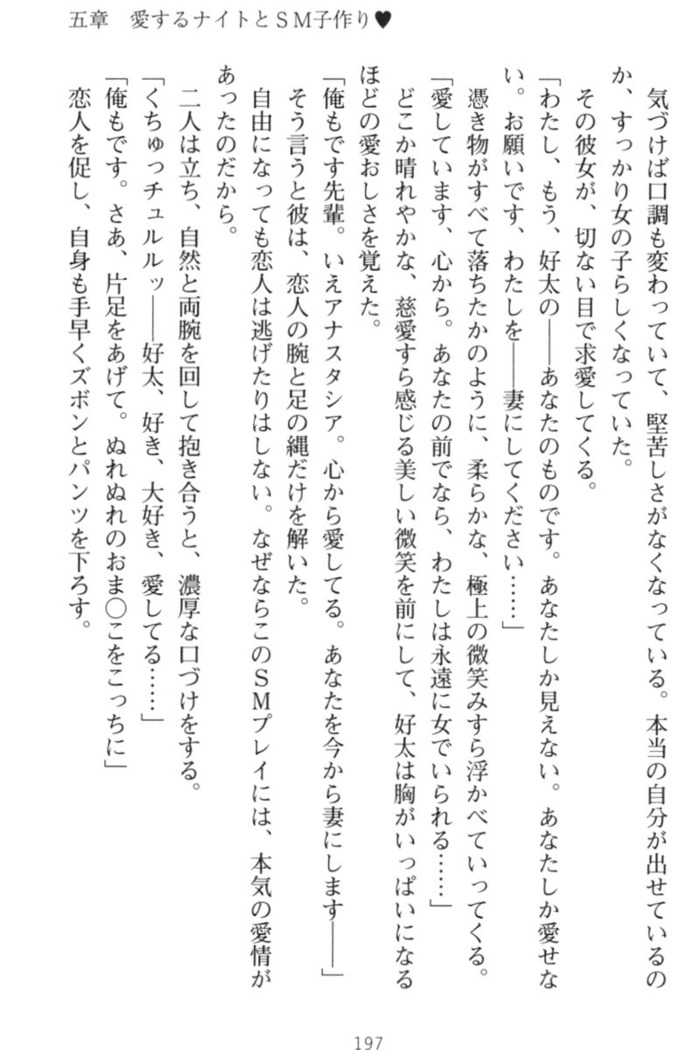 五章　愛するナイトとＳＭ子作り♥
　気づけば口調も変わっていて、堅苦しさがなくなっている。本当の自分が出せているの
か、すっかり女の子らしくなっていた。
　その彼女が、切ない目で求愛してくる。
「わたし、もう、好太の――あなたのものです。あなたしか見えない。あなたしか愛せな
い。お願いです、わたしを――妻にしてください……」
　憑き物がすべて落ちたかのように、柔らかな、極上の微笑みすら浮かべていってくる。
「愛しています、心から。あなたの前でなら、わたしは永遠に女でいられる……」
　どこか晴れやかな、慈愛すら感じる美しい微笑を前にして、好太は胸がいっぱいになる
ほどの愛おしさを覚えた。
「俺もです先輩。いえアナスタシア。心から愛してる。あなたを今から妻にします――」
　そう言うと彼は、恋人の腕と足の縄だけを解いた。
　自由になっても恋人は逃げたりはしない。なぜならこのＳＭプレイには、本気の愛情が
あったのだから。
　二人は立ち、自然と両腕を回して抱き合うと、濃厚な口づけをする。
「くちゅっチュルルッ――好太、好き、大好き、愛してる……」
「俺もです。さあ、片足をあげて。ぬれぬれのおま〇こをこっちに」
　恋人を促し、自身も手早くズボンとパンツを下ろす。
197